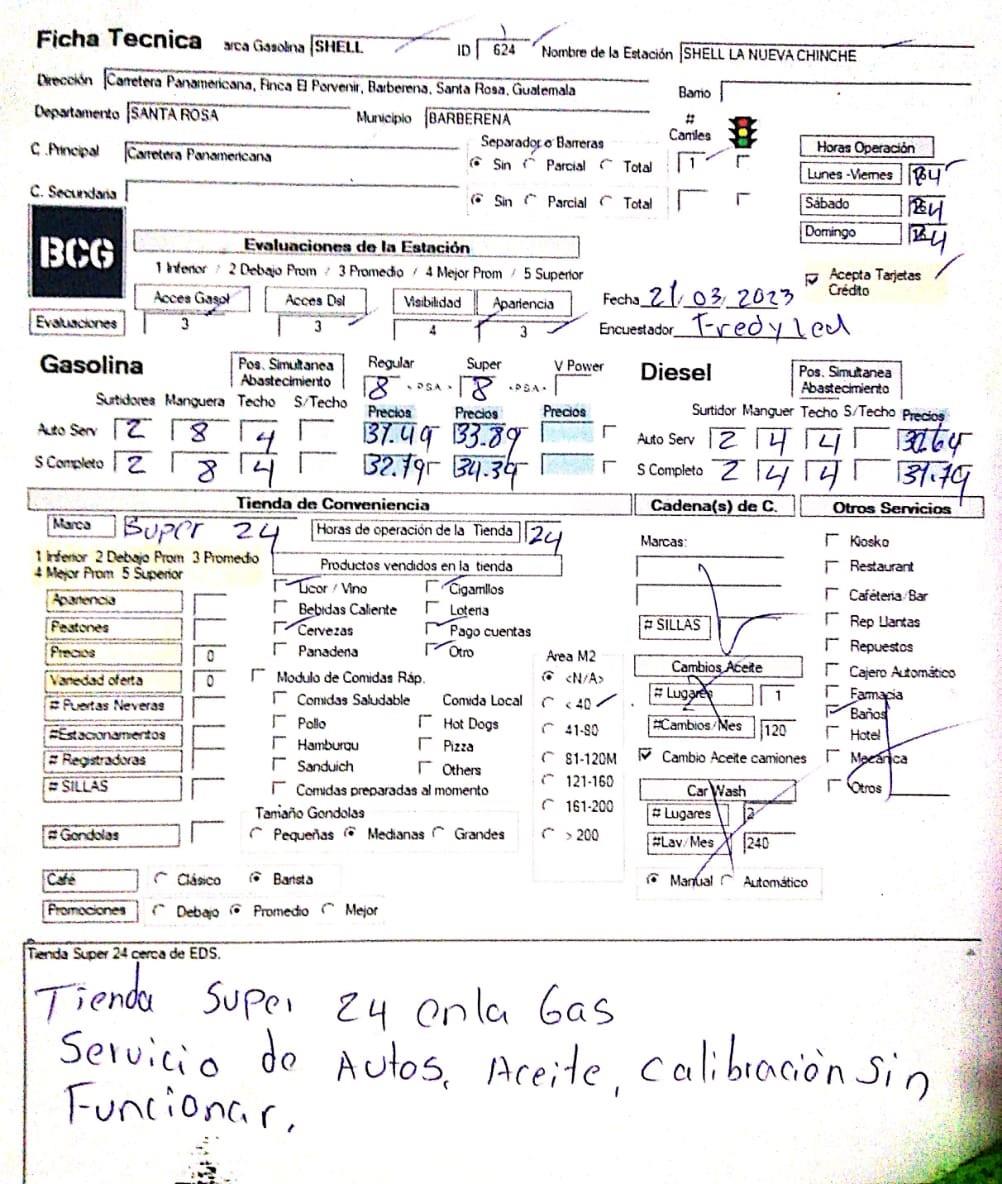 Ficha Tecnica arca Gasolina SHELL ID 624 Nombre de la Estación SHELL LA NUEVA CHINCHE
Dirección Carretera Panamericana, Finca El Porvenir, Barberena, Santa Rosa, Guatemala Barrio
Departamento SANTA ROSA Municipio BARBERENA # Carriles
C .Principal Carretera Panamericana Separador o Barreras Sin Parcial Total 1
Horas Operación
Lunes -Viernes 24
C. Secundaria Sin Parcial Total
Sábado 24
Domingo 24
BCG
Evaluaciones de la Estación
1 Inferior / 2 Debajo Prom / 3 Promedio / 4 Mejor Prom / 5 Superior
Acepta Tarjetas Crédito
Acces Gasol Acces Dsl Visibilidad Apariencia
Fecha 21/03/2023
Evaluaciones 3 3 4 3
Encuestador Fredy
Gasolina Pos. Simultanea Abastecimiento Regular Super V Power
8 .PSA. 8 .PSA.
Surtidores Manguera Techo S/Techo Precios Precios Precios
Auto Serv 2 8 4 33.89
S Completo 2 8 4 32.79 34.39
Diesel Pos. Simultanea Abastecimiento
Surtidor Manguer Techo S/Techo Precios
Auto Serv 2 4 4
S Completo 2 4 4 31.79
Tienda de Conveniencia Cadena(s) de C. Otros Servicios
Marca Super 24 Horas de operación de la Tienda 24
1 Inferior 2 Debajo Prom 3 Promedio
4 Mejor Prom 5 Superior
Productos vendidos en la tienda
Licor / Vino Cigarrillos
Bebidas Caliente Loteria
Cervezas Pago cuentas
Panaderia Otro
Apariencia
Peatones
Precios 0
Variedad oferta 0
# Puertas Neveras
#Estacionamientos
# Registradoras
# SILLAS
# Gondolas
Modulo de Comidas Ráp.
Comidas Saludable Comida Local
Pollo Hot Dogs
Hamburqu Pizza
Sanduich Others
Comidas preparadas al momento
Tamaño Gondolas
Pequeñas Medianas Grandes
Area M2
<N/A>
< 40
41-80
81-120M
121-160
161-200
> 200
Café Clásico Barista
Promociones Debajo Promedio Mejor
Marcas:
# SILLAS
Cambios Aceite
# Lugares 1
#Cambios/Mes 120
Cambio Aceite camiones
Car Wash
# Lugares 2
#Lav/Mes 240
Manual Automático
Kiosko
Restaurant
Caféteria/Bar
Rep Llantas
Repuestos
Cajero Automático
Farmacia
Baños
Hotel
Mecánica
Otros
Tienda Super 24 cerca de EDS.
Tienda Super 24 en la Gas
Servicio de Autos, Aceite, Calibración Sin
Funcionar.